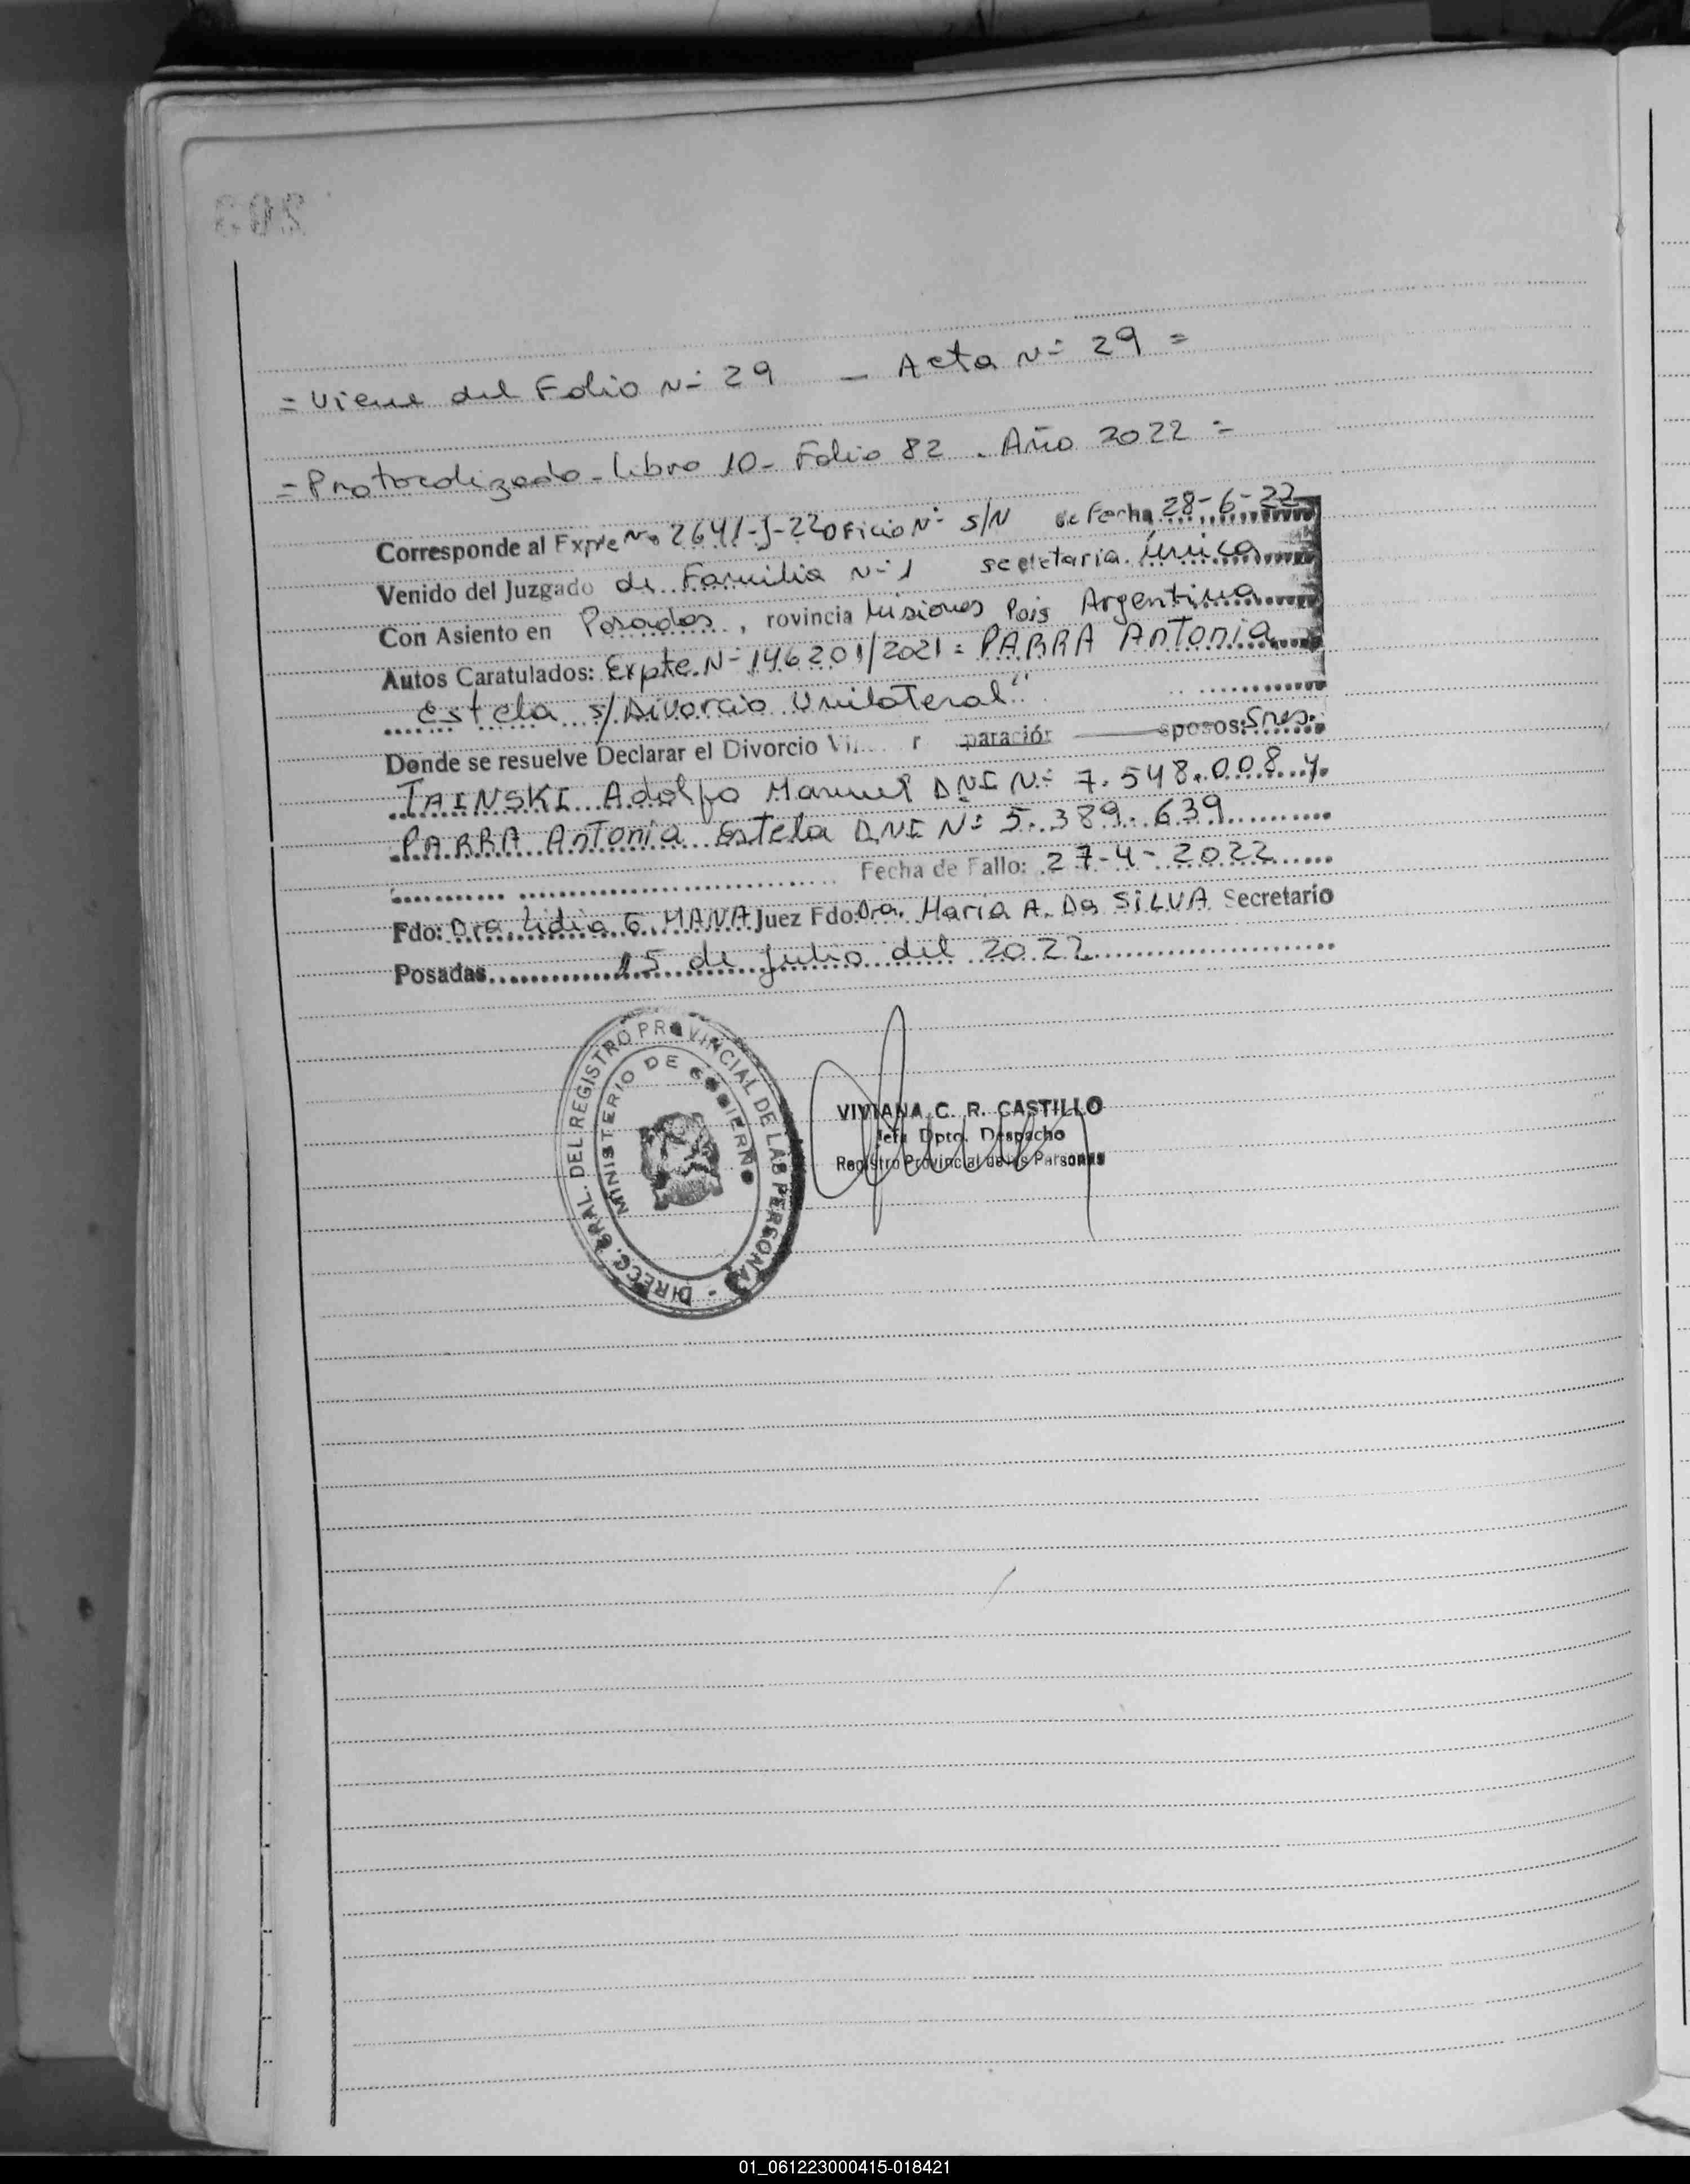 = Viene del Folio Nº 29 - Acta Nº 29 =
= Protocolizado - libro 10 - Folio 82 . Año 2022 =
Corresponde al Expte Nº 2641-J-22 Oficio Nº S/N de Fecha 28-6-22
Venido del Juzgado de Familia Nº 1 secretaria única
Con Asiento en Posadas, rovincia Misiones Pais Argentina
Autos Caratulados: Expte. Nº 146201/2021 = PARRA Antonia
Estela s/Divorcio Unilateral"
Donde se resuelve Declarar el Divorcio paración sposos: Sres.
Adolfo Manuel DNI Nº 7.548.008 y
PARRA Antonia Estela DNI Nº 5.389.639
Fecha de Fallo: 27-4-2022
Fdo: Dra. Lidia G. MANA Juez Fdo: Dra. Maria A. Da SILVA Secretario
Posadas 15 de julio del 2022
DIRECC. GRAL. DEL REGISTRO PROVINCIAL DE LAS PERSONAS -
MINISTERIO DE GOBIERNO
VIVIANA C. R. CASTILLO
Jefa Dpto. Despacho
Registro Provincial de las Personas
01_061223000415-018421